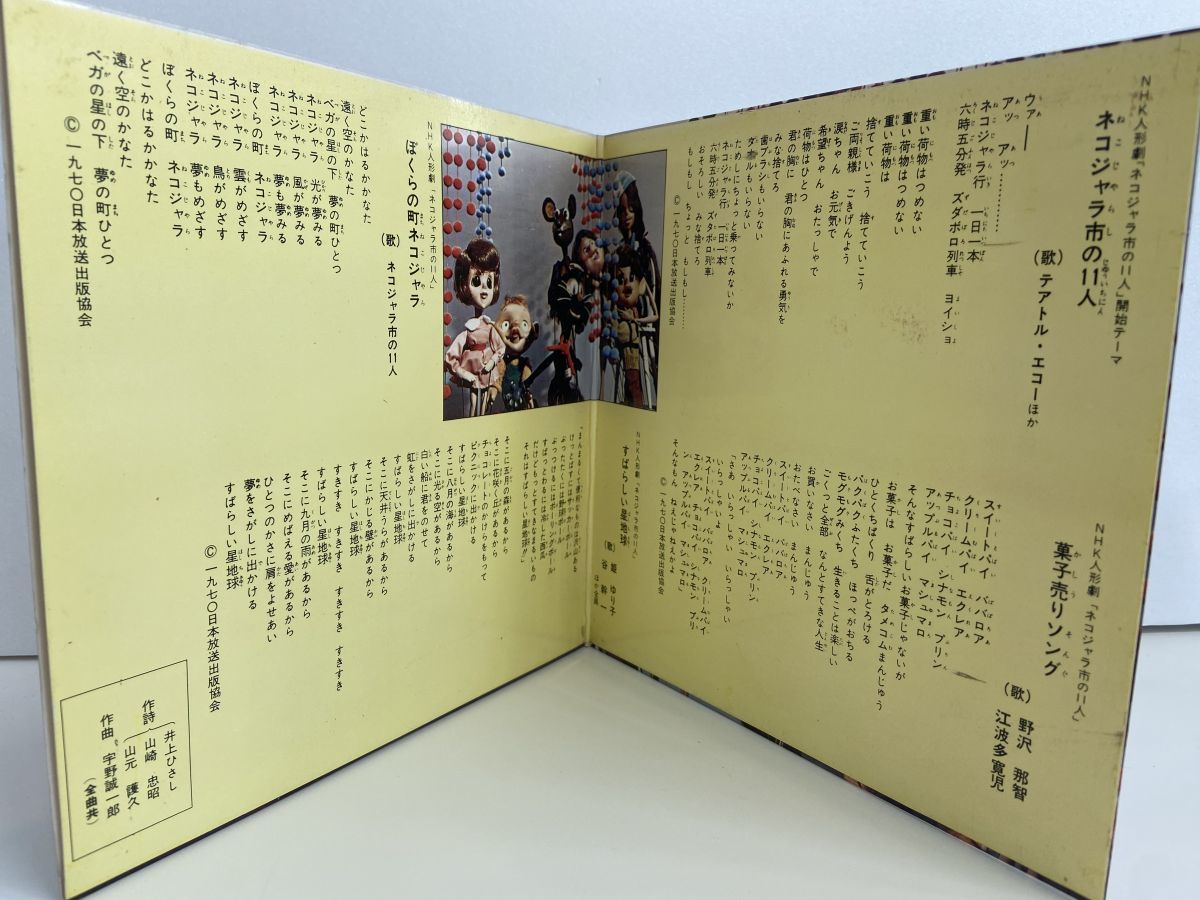 NHK人形劇「ネコジャラ市の11人」開始テーマ
ネコジャラ市の11人
(歌) テアトル・エコーほか
ウァ――
アッ アッ………
ネコジャラ行 一日一本
六時五分発 ズダボロ列車 ヨイショ
重い荷物はつめない
重い荷物はつめない
重い荷物は
捨てていこう 捨てていこう
ご両親様 ごきげんよう
涙ちゃん お元気で
希望ちゃん おたっしゃで
荷物はひとつ
君の胸に 君の胸にあふれる勇気を
みな捨てろ
歯ブラシもいらない
タオルもいらない
ためしにちょっと乗ってみないか
ネコジャラ行 一日一本
六時五分発 ズタボロ列車
おそろしい みな捨てろ
もしもし ちょっと もしもし………
© 一九七〇日本放送出版協会
NHK人形劇「ネコジャラ市の11人」
菓子売りソング
(歌) 野沢 那智
江波多寛児
スイートパイ ババロア
クリームパイ エクレア
チョコパイ シナモン プリン
アップルパイ マシュマロ
そんなすばらしいお菓子じゃないが
お菓子は お菓子だ タメコムまんじゅう
ひとくちぱくり 舌がとろける
パクパクふたくち ほっぺがおちる
モグモグみくち 生きることは楽しい
ごくっと全部 なんとすてきな人生
お買いなさい まんじゅう
おたべなさい まんじゅう
スイートパイ ババロア
クリームパイ エクレア
チョコパイ シナモン プリン
アップルパイ マシュマロ
「さあ いらっしゃい いらっしゃい
いらっしゃいよ
スイートパイ ババロア クリームパイ
エクレア チョコパイ シナモン プリン
アップルパイ マシュマロ」
そんなもん ねえじゃねえかよ
© 一九七〇日本放送出版協会
NHK人形劇「ネコジャラ市の11人」
ぼくらの町ネコジャラ
(歌) ネコジャラ市の11人
どこかはるかかなた
遠く空のかなた
ベガの星の下 夢の町ひとつ
ネコジャラ 光が夢みる
ネコジャラ 風が夢みる
ネコジャラ 夢も夢みる
ぼくらの町 ネコジャラ
ネコジャラ 雲がめざす
ネコジャラ 鳥がめざす
ネコジャラ 夢もめざす
ぼくらの町 ネコジャラ
どこかはるかかなた
遠く空のかなた
ベガの星の下 夢の町ひとつ
© 一九七〇日本放送出版協会
NHK人形劇「ネコジャラ市の11人」
すばらしい星地球
(歌) 姫 ゆり子
谷 幹一
ほか全員
「まんまるくて便利なものは沢山ある
けっとばすにはサッカーボール
ぶったたくには野球ボール
ぶっつけるにはボーリングボール
すぱっとわるには冷した西瓜
だけどもっとも すてきなまるいもの
それはすばらしい星地球!!」
そこに五月の森があるから
そこに花咲く丘があるから
チョコレートのかけらをもって
ピクニックに出かける
すばらしい星地球
そこに八月の海があるから
そこに光る空があるから
白い船に君をのせて
虹をさがしに出かける
すばらしい星地球
そこに天井うらがあるから
そこにかじる壁があるから
すばらしい星地球
すきすき すきすき すきすき すきすき
すばらしい星地球
そこに九月の雨があるから
そこにめばえる愛があるから
ひとつのかさに肩をよせあい
夢をさがしに出かける
すばらしい星地球
© 一九七〇日本放送出版協会
作詩 井上ひさし
山崎 忠昭
山元 護久
作曲 宇野誠一郎
(全曲共)